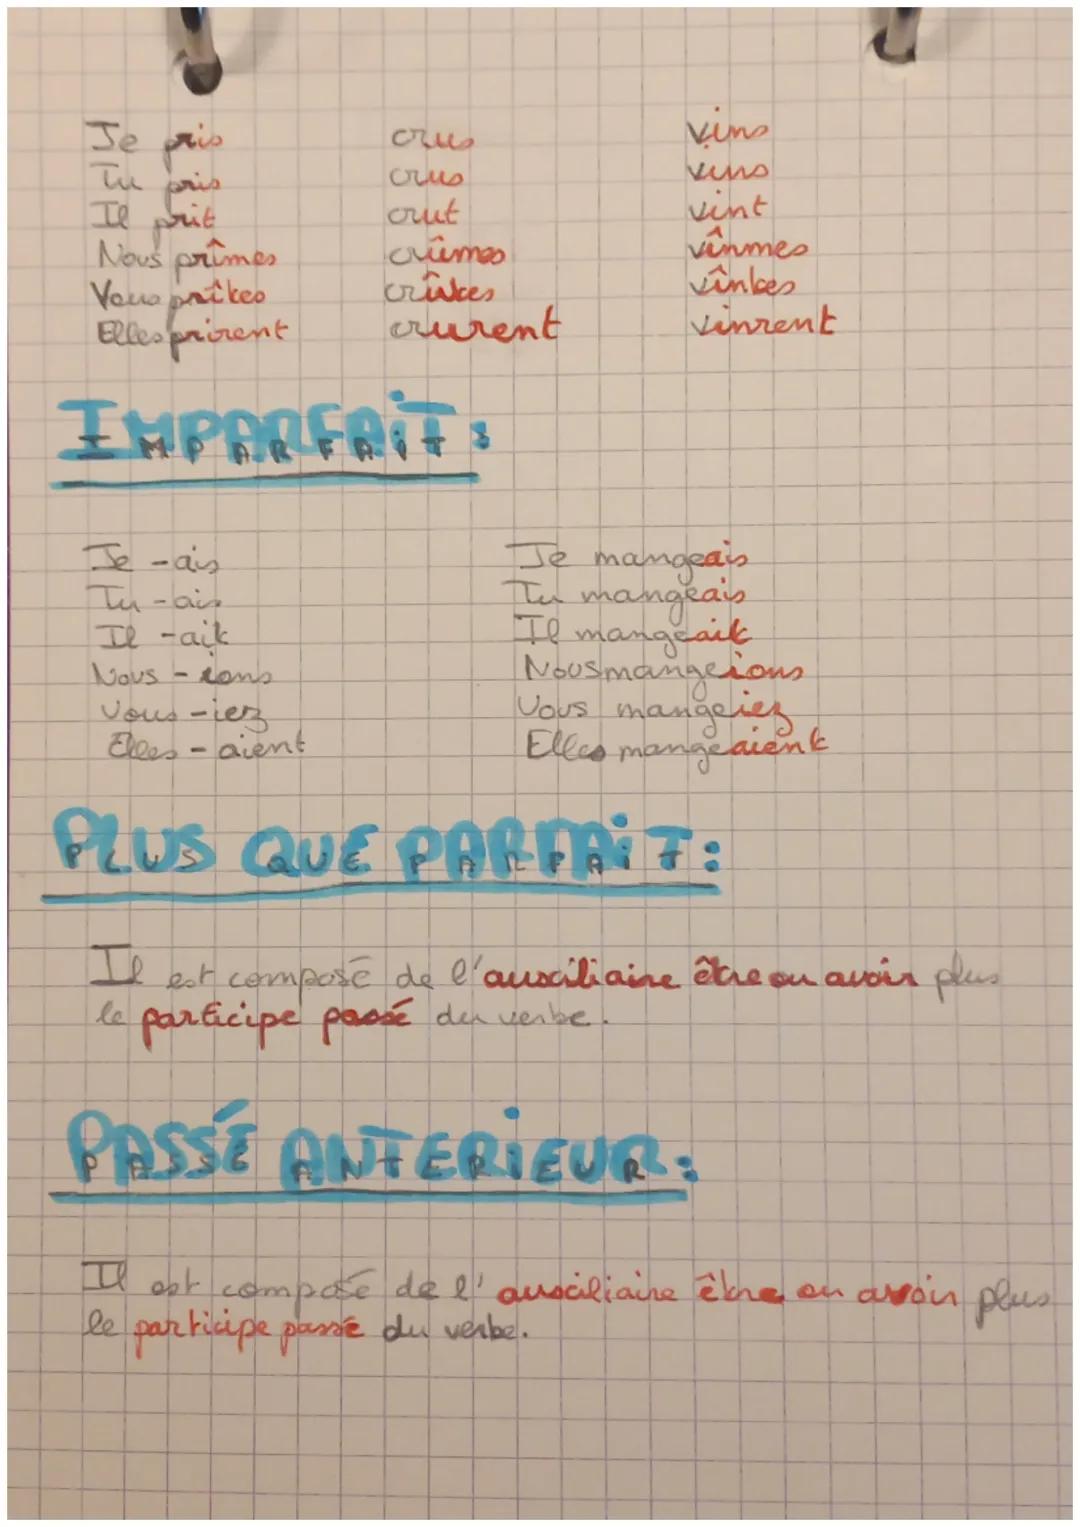 Je pris crus vins
Tu pris crus vins
Il prit crut vint
Nous prîmes crûmes vînmes
Vous prîtes crûtes vîntes
Elles prirent crurent vinrent
IMPARFAiT :
Je - ais Je mangeais
Tu - ais Tu mangeais
Il - ait Il mangeait
Nous - ions Nous mangeions
Vous - iez Vous mangeiez
Elles - aient Elles mangeaient
PLUS QUE PARFAiT :
Il est composé de l'auxiliaire être ou avoir plus
le participe passé du verbe.
PASSÉ ANTERiEUR :
Il est composé de l'auxiliaire être ou avoir plus
le participe passé du verbe.